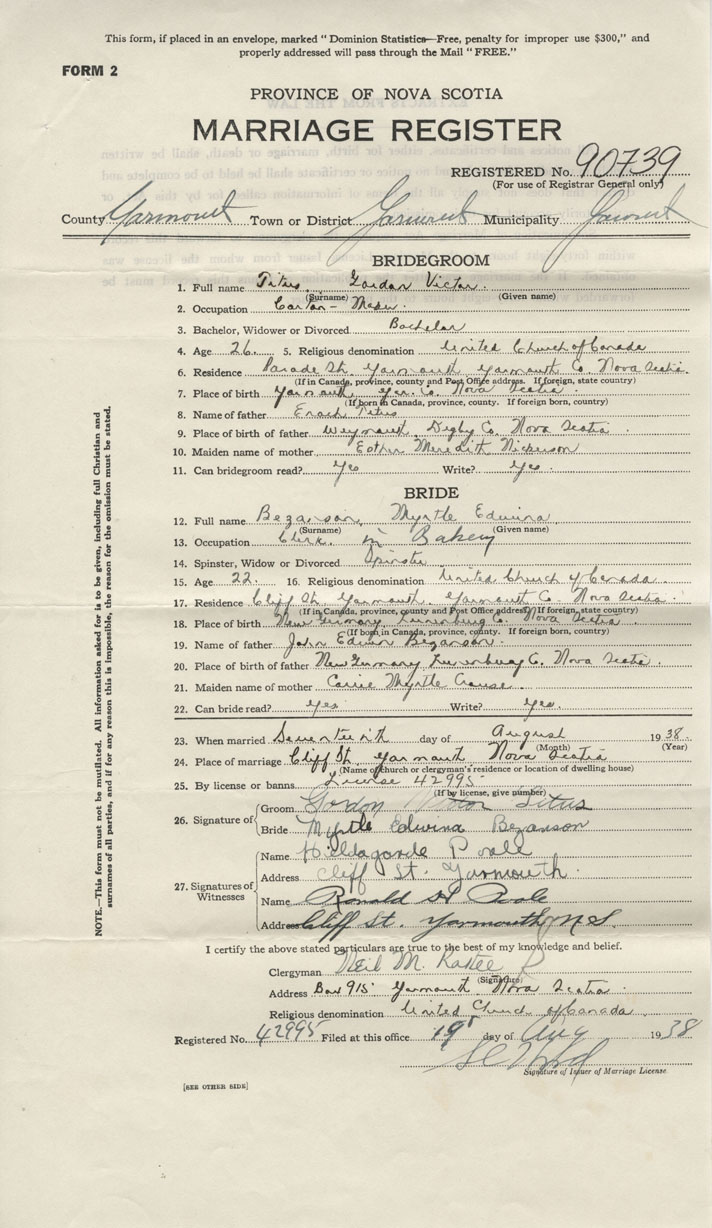 This form, if placed in an envelope, marked "Dominion Statistics—Free, penalty for improper use $300," and
properly addressed will pass through the Mail "FREE."
FORM 2
PROVINCE OF NOVA SCOTIA
MARRIAGE REGISTER
REGISTERED No. 90739
(For use of Registrar General only)
County Yarmouth Town or District Yarmouth Municipality Yarmouth
BRIDEGROOM
1. Full name Titus, Gordon Victor
(Surname) (Given name)
2. Occupation Carton-Maker
3. Bachelor, Widower or Divorced Bachelor
4. Age 26 5. Religious denomination United Church of Canada
6. Residence Parade St. Yarmouth Yarmouth Co. Nova Scotia
(If in Canada, province, county and Post Office address. If foreign, state country)
7. Place of birth Yarmouth, Yar. Co. Nova Scotia
(If born in Canada, province, county. If foreign born, country)
8. Name of father Enoch Titus
9. Place of father Weymouth, Digby Co. Nova Scotia
10. Maiden name of mother Esther Meredith Nickerson
11. Can bridegroom read? Yes Write? Yes
BRIDE
12. Full name Bezanson, Myrtle Edwina
(Surname) (Given name)
13. Occupation Clerk in Bakery
14. Spinster, Widow or Divorced Spinster
15. Age 22. 16. Religious denomination United Church of Canada
17. Residence Cliff St. Yarmouth, Yarmouth Co. Nova Scotia
(If in Canada, province, county and Post Office address. If foreign, state country)
18. Place of birth New Germany Lunenburg Co. Nova Scotia
(If born in Canada, province, county. If foreign born, country)
19. Name of father John Edwin Bezanson
20. Place of birth of father New Germany Lunenburg Co. Nova Scotia
21. Maiden name of mother Carrie Myrtle Crouse
22. Can bride read? Yes Write? Yes.
23. When married Seventeenth day of August 1938
(Month) (Year)
24. Place of marriage Cliff St. Yarmouth Nova Scotia
(Name of church or clergyman's residence or location of dwelling house)
25. By license or banns License 42995
(If by license, give number)
26. Signature of Groom Gordon Victor Titus
Bride Myrtle Edwina Bezanson
27. Signatures of Witnesses Name Hildagarde Poole
Address Cliff St. Yarmouth
Name Ronald H Poole
Address Cliff St. Yarmouth N.S.
I certify the above stated particulars are true to the best of my knowledge and belief.
Clergyman Neil M.
(Signature)
Address Box 915 Yarmouth Nova Scotia
Religious denomination United Church of Canada
Registered No. 42995 Filed at this office 19 day of Aug 1938
Signature of Issuer of Marriage License
[SEE OTHER SIDE]
NOTE.—This form must not be mutilated. All information asked for is to be given, including full Christian and
surnames of all parties, and if for any reason this is impossible, the reason for the omission must be stated.